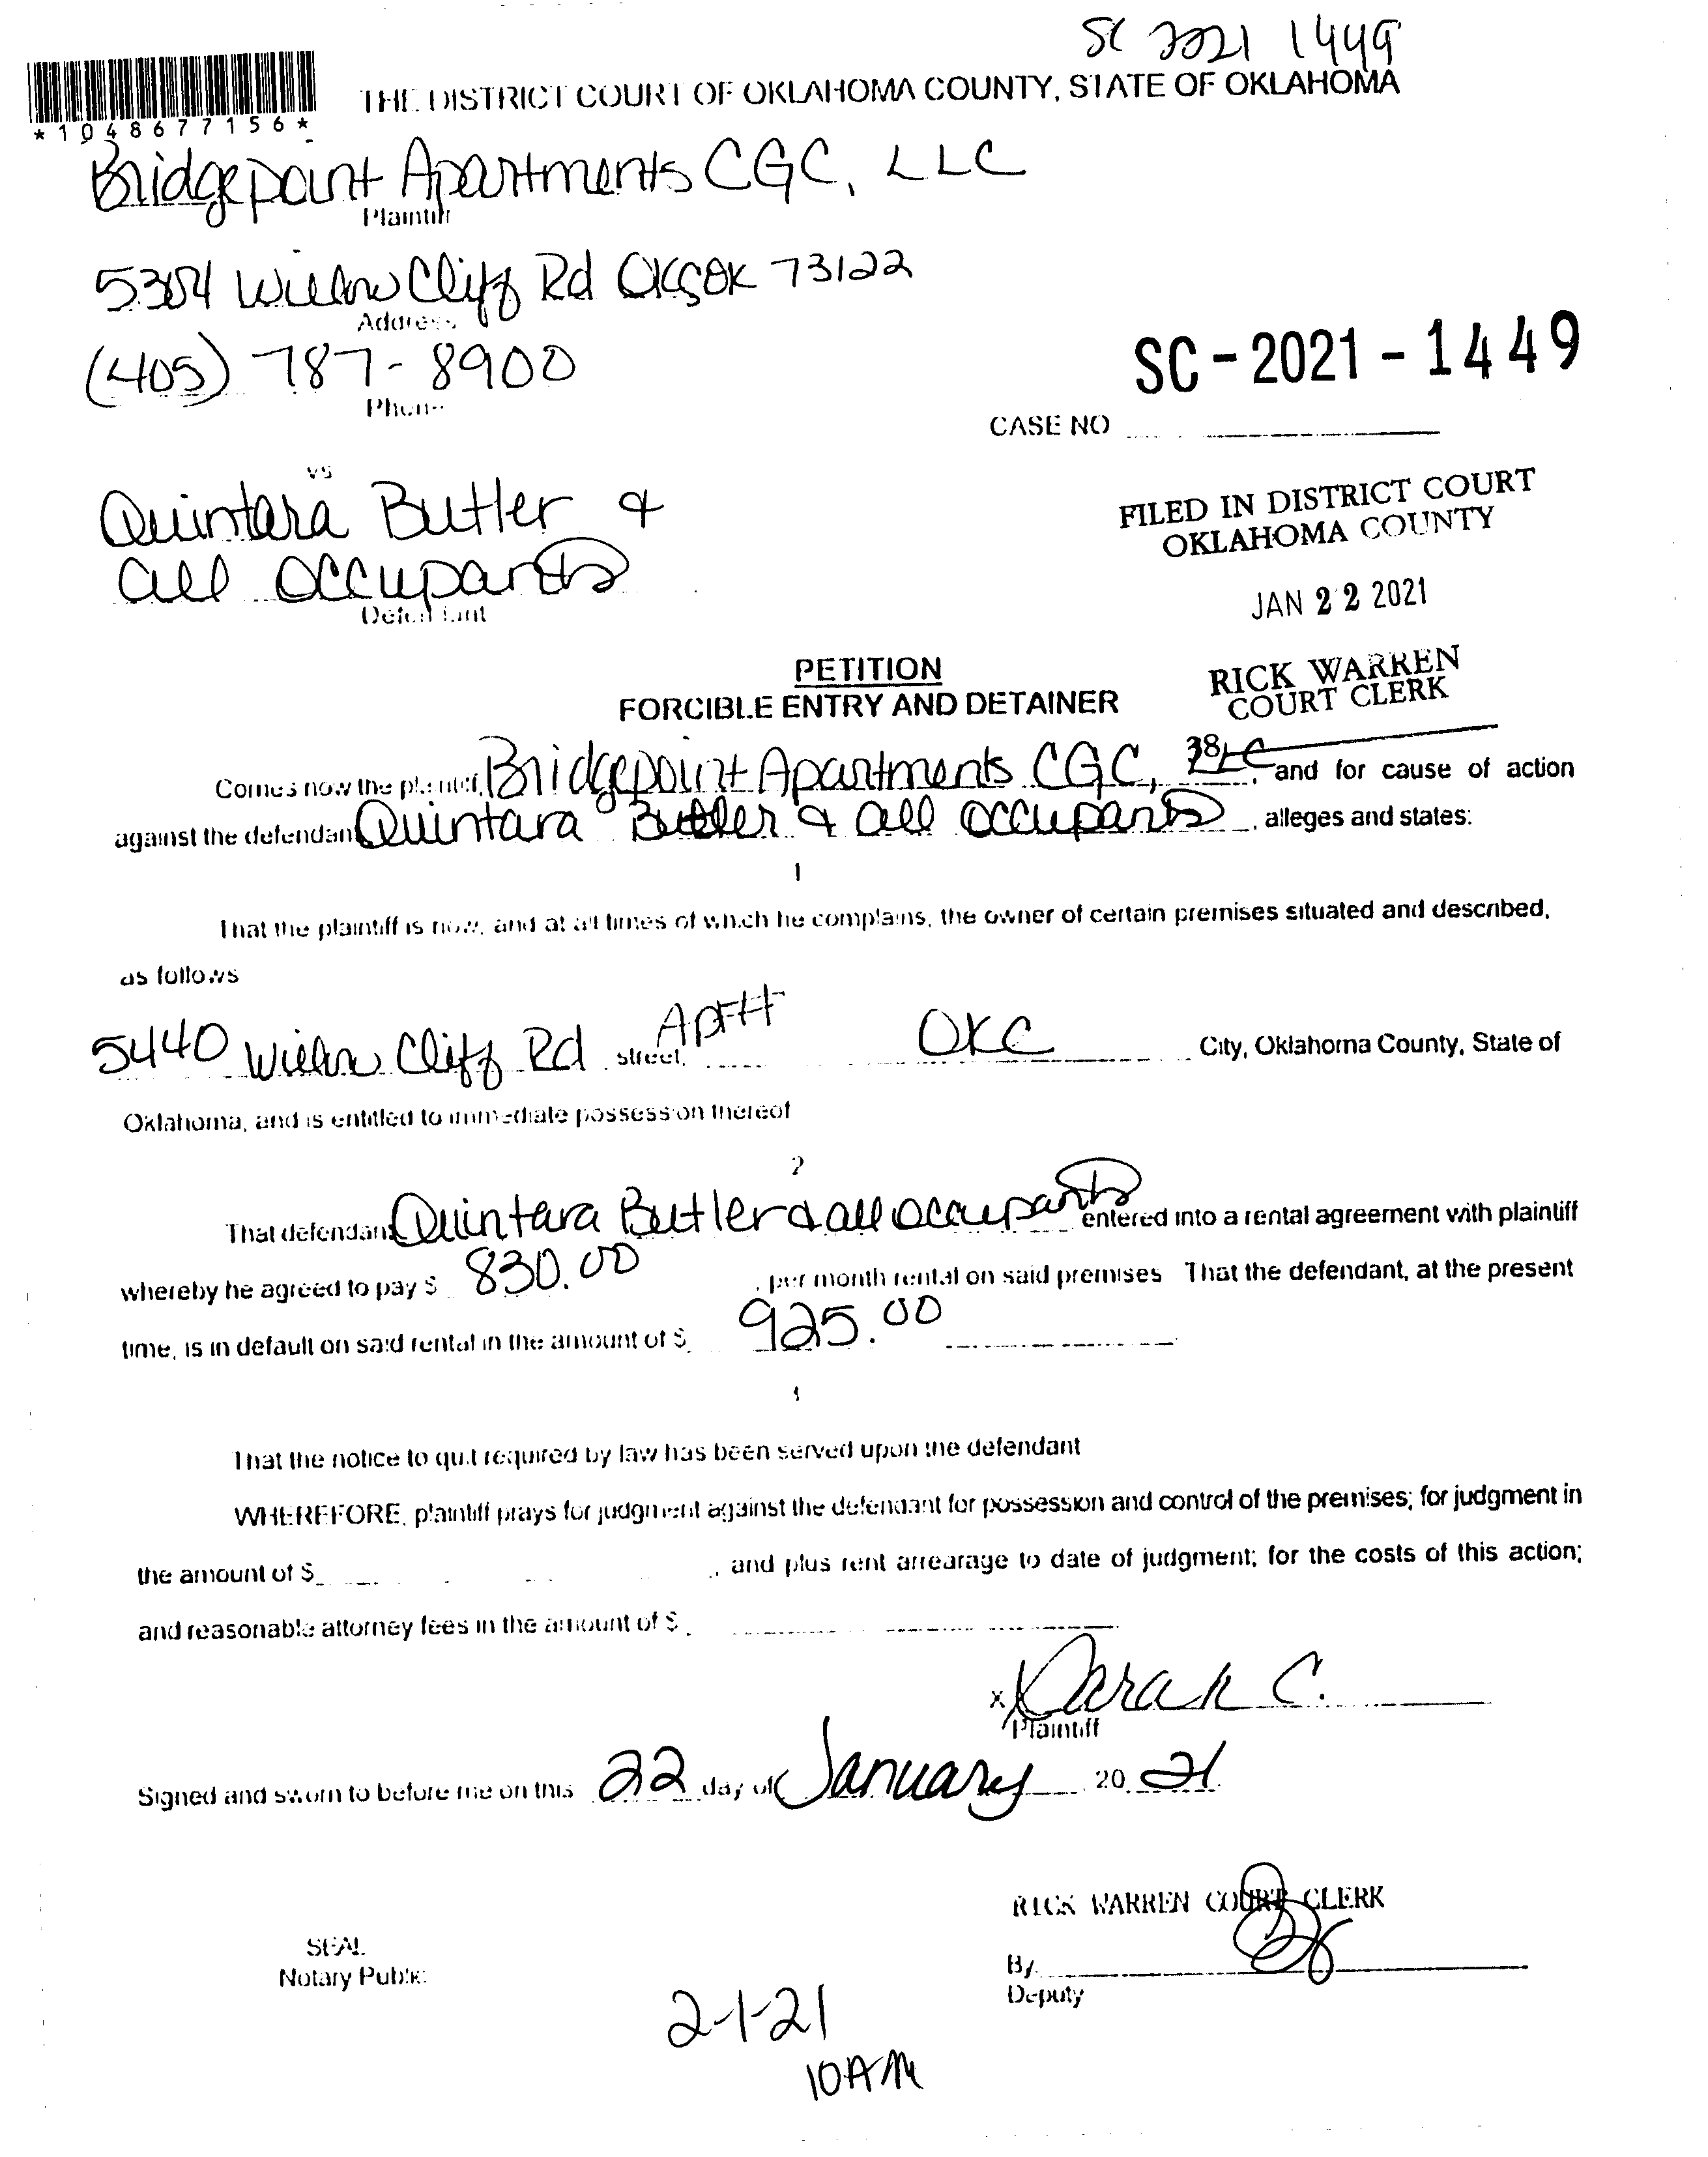 SC 2021 1449
THE DISTRICT COURT OF OKLAHOMA COUNTY, STATE OF OKLAHOMA
*1048677156*
Bridgepoint Apartments CGC, LLC
Plaintiff
5304 Willow Cliff Rd OKC OK 73122
Address
(405) 787-8900
Phone
SC-2021-1449
CASE NO
vs
Quintara Butler &
all occupants
Defendant
FILED IN DISTRICT COURT
OKLAHOMA COUNTY
JAN 22 2021
RICK WARREN
COURT CLERK
38
PETITION
FORCIBLE ENTRY AND DETAINER
Comes now the plaintiff, Bridgepoint Apartments CGC, LLC, and for cause of action
against the defendant Quintara Butler & all occupants, alleges and states:
1
That the plaintiff is now, and at all times of which he complains, the owner of certain premises situated and described,
as follows
5440 Willow Cliff Rd street, Apt# OKC City, Oklahoma County, State of
Oklahoma, and is entitled to immediate possession thereof
2
That defendant Quintara Butler & all occupants entered into a rental agreement with plaintiff
whereby he agreed to pay $ 830.00, per month rental on said premises That the defendant, at the present
time, is in default on said rental in the amount of $ 925.00
3
That the notice to quit required by law has been served upon the defendant
WHEREFORE, plaintiff prays for judgment against the defendant for possession and control of the premises; for judgment in
the amount of $ , and plus rent arrearage to date of judgment; for the costs of this action;
and reasonable attorney fees in the amount of $
x Sarah C.
Plaintiff
Signed and sworn to before me on this 22 day of January 20 21
RICK WARREN COURT CLERK
SEAL
Notary Public
By
Deputy
2-1-21
10AM